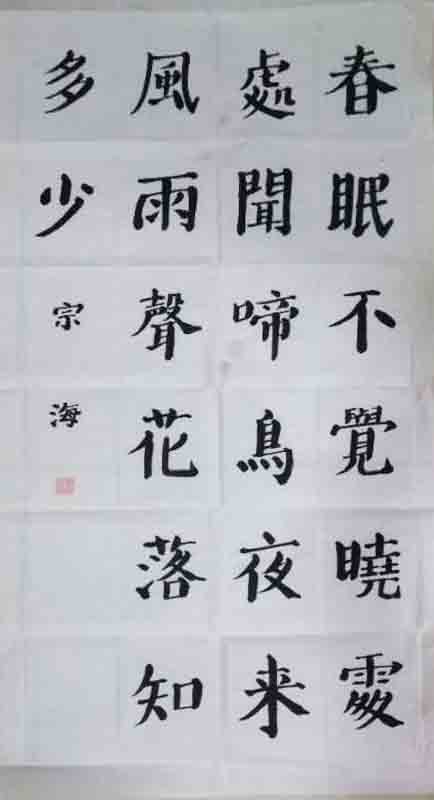 春眠不覺曉處
處聞啼鳥夜来
風雨聲花落知
多少
宗海